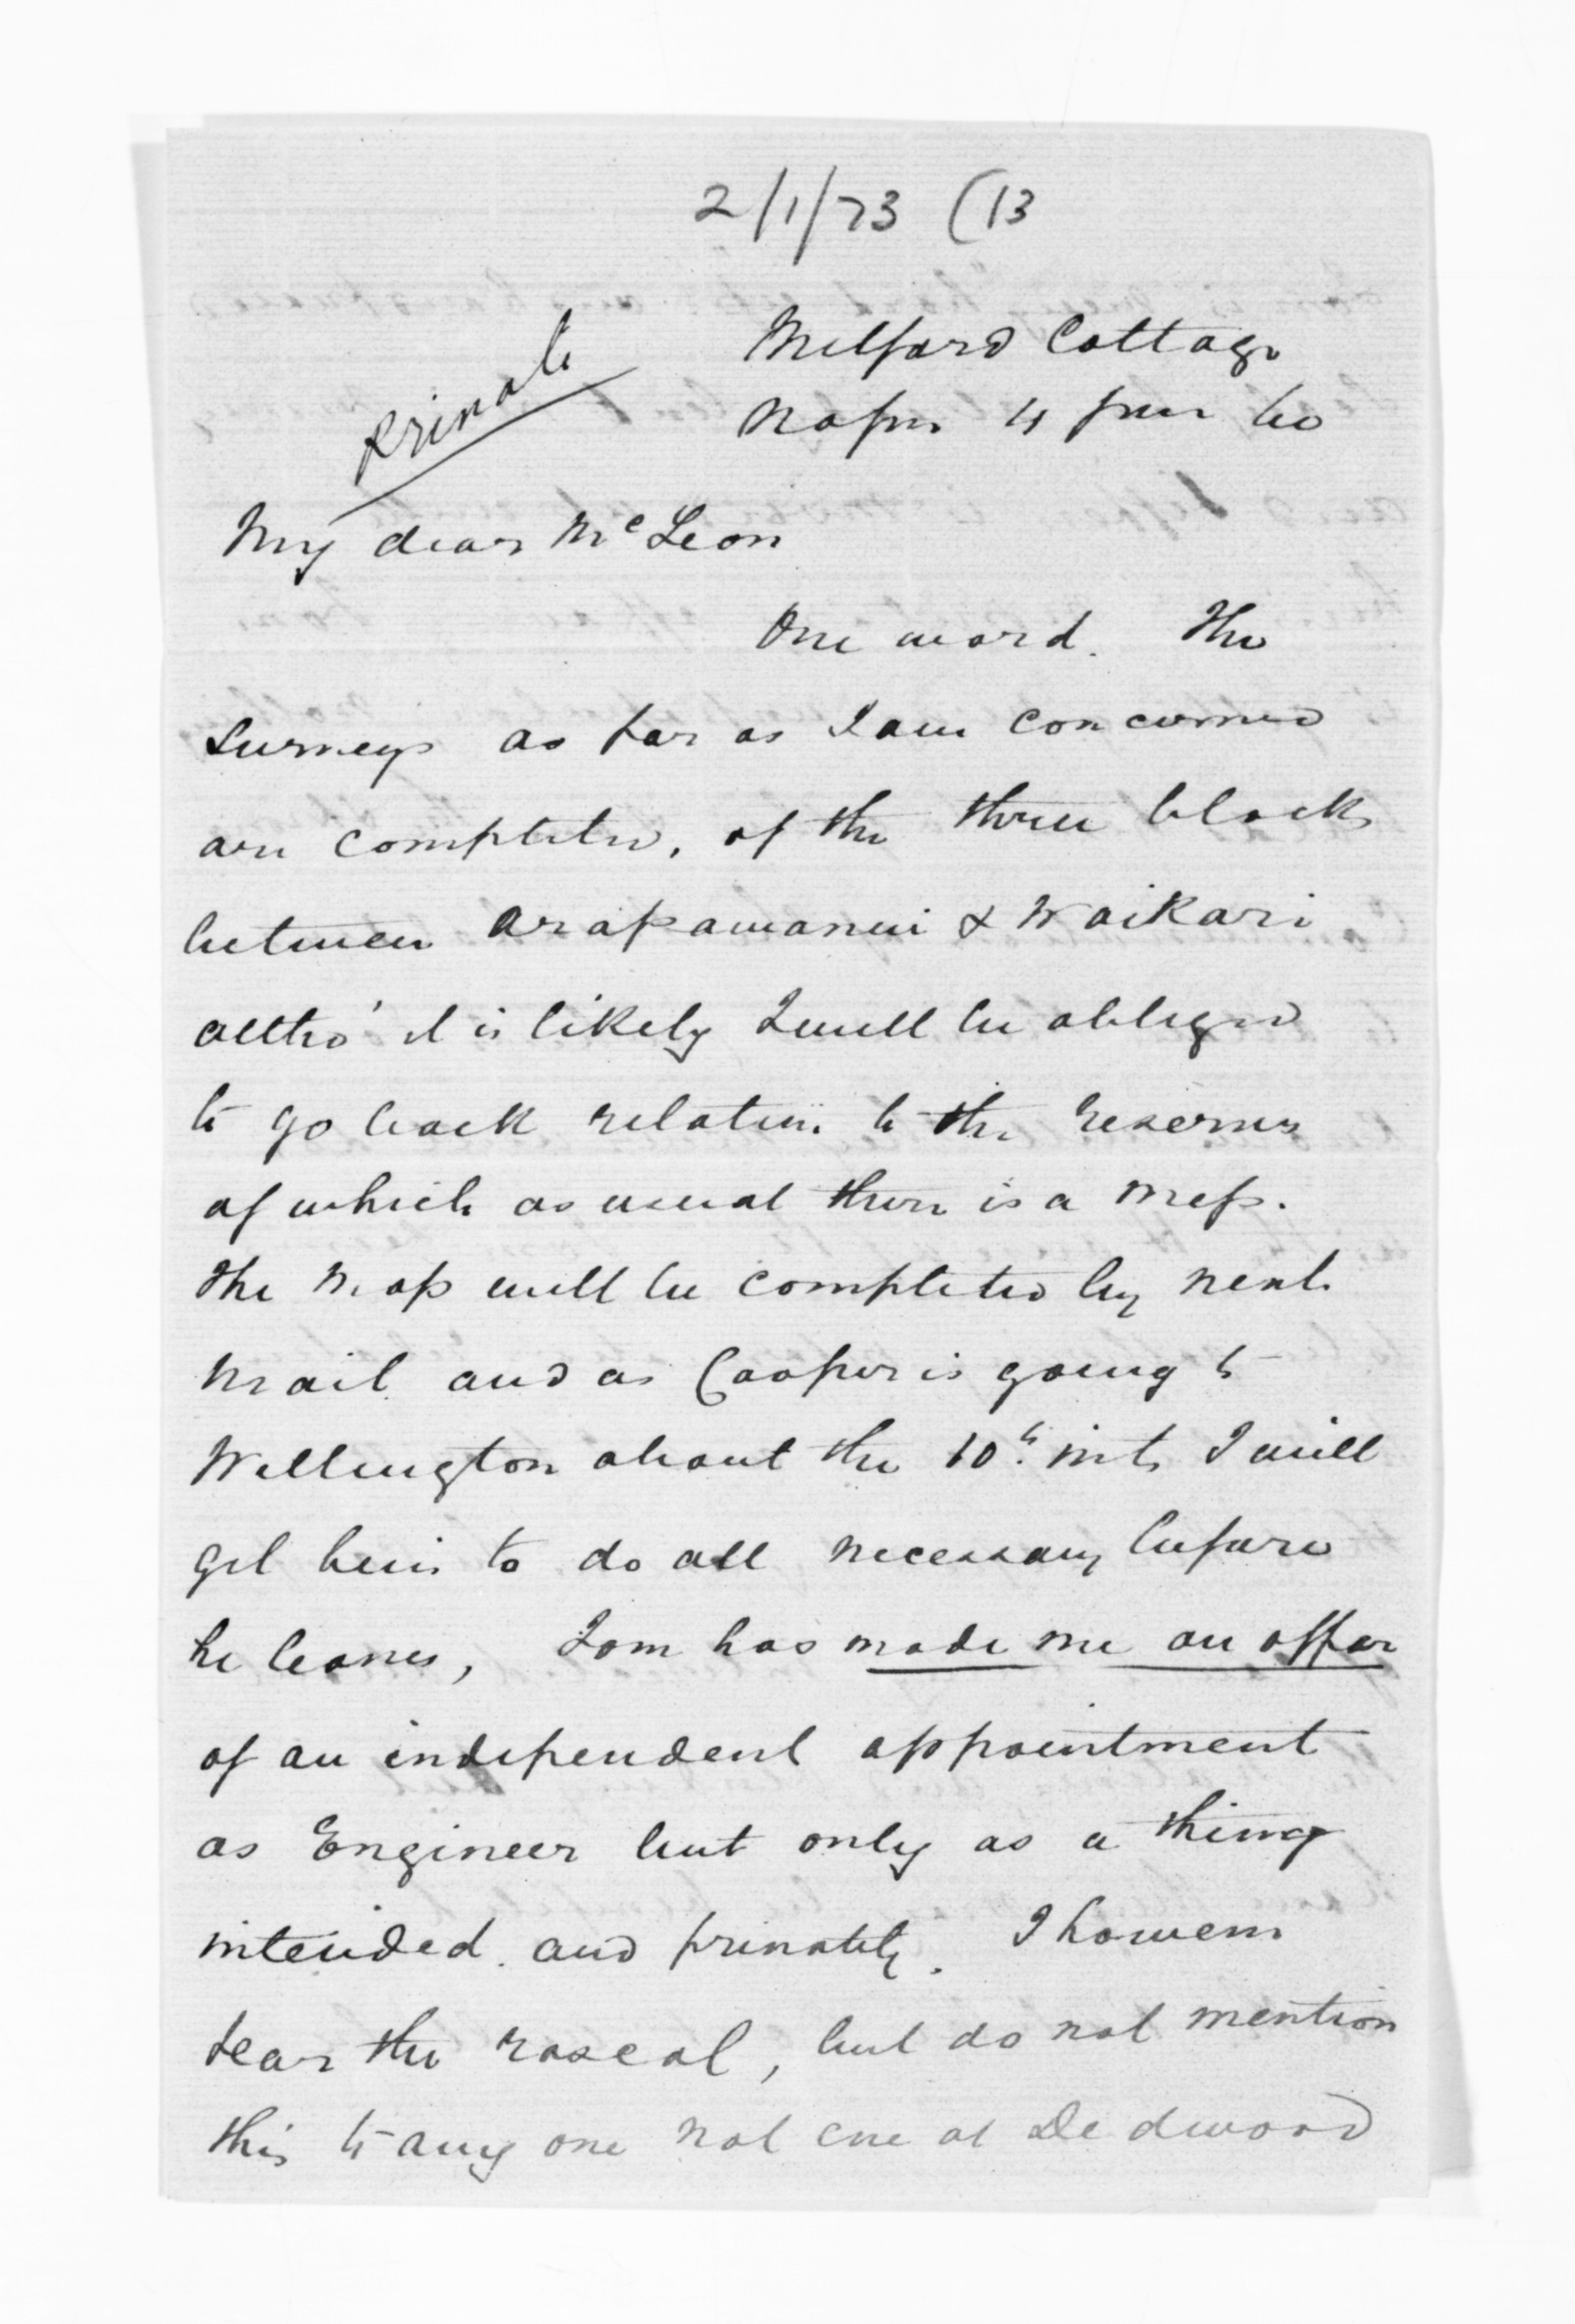 2/1/73 (13
Private
Milford Cottage
Napier 4 June 60
My dear McLean
One word. The
Surveys as far as I am concerned
are completed, of the three blocks
between Arapawanui & Waikari
altho' it is likely I will be obliged
to go back relative to the reserves
of which as usual there is a mess.
The Map will be completed by next
mail and as Cooper is going to
Wellington about the 10th inst, I will
get him to do all necessary before
he leaves, Tom has made me an offer
of an independent appointment
as Engineer but only as a thing
intended and privately. I however
fear the rascal, but do not mention
this to any one not even at